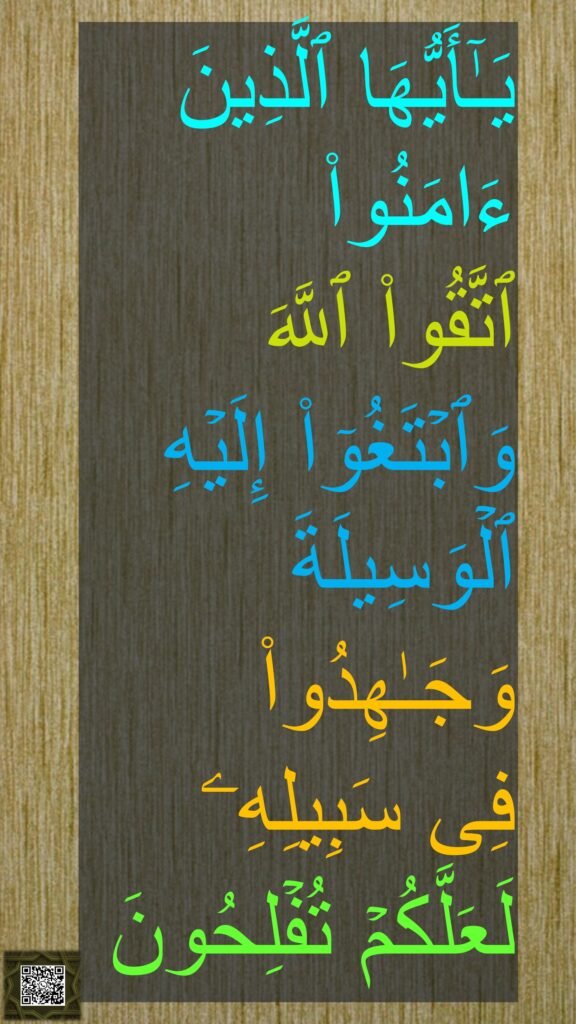 يَـٰٓأَيُّهَا ٱلَّذِينَ
ءَامَنُوا۟
ٱتَّقُوا۟ ٱللَّهَ
وَٱبْتَغُوٓا۟ إِلَيْهِ
ٱلْوَسِيلَةَ
وَجَـٰهِدُوا۟
فِى سَبِيلِهِۦ
لَعَلَّكُمْ تُفْلِحُونَ